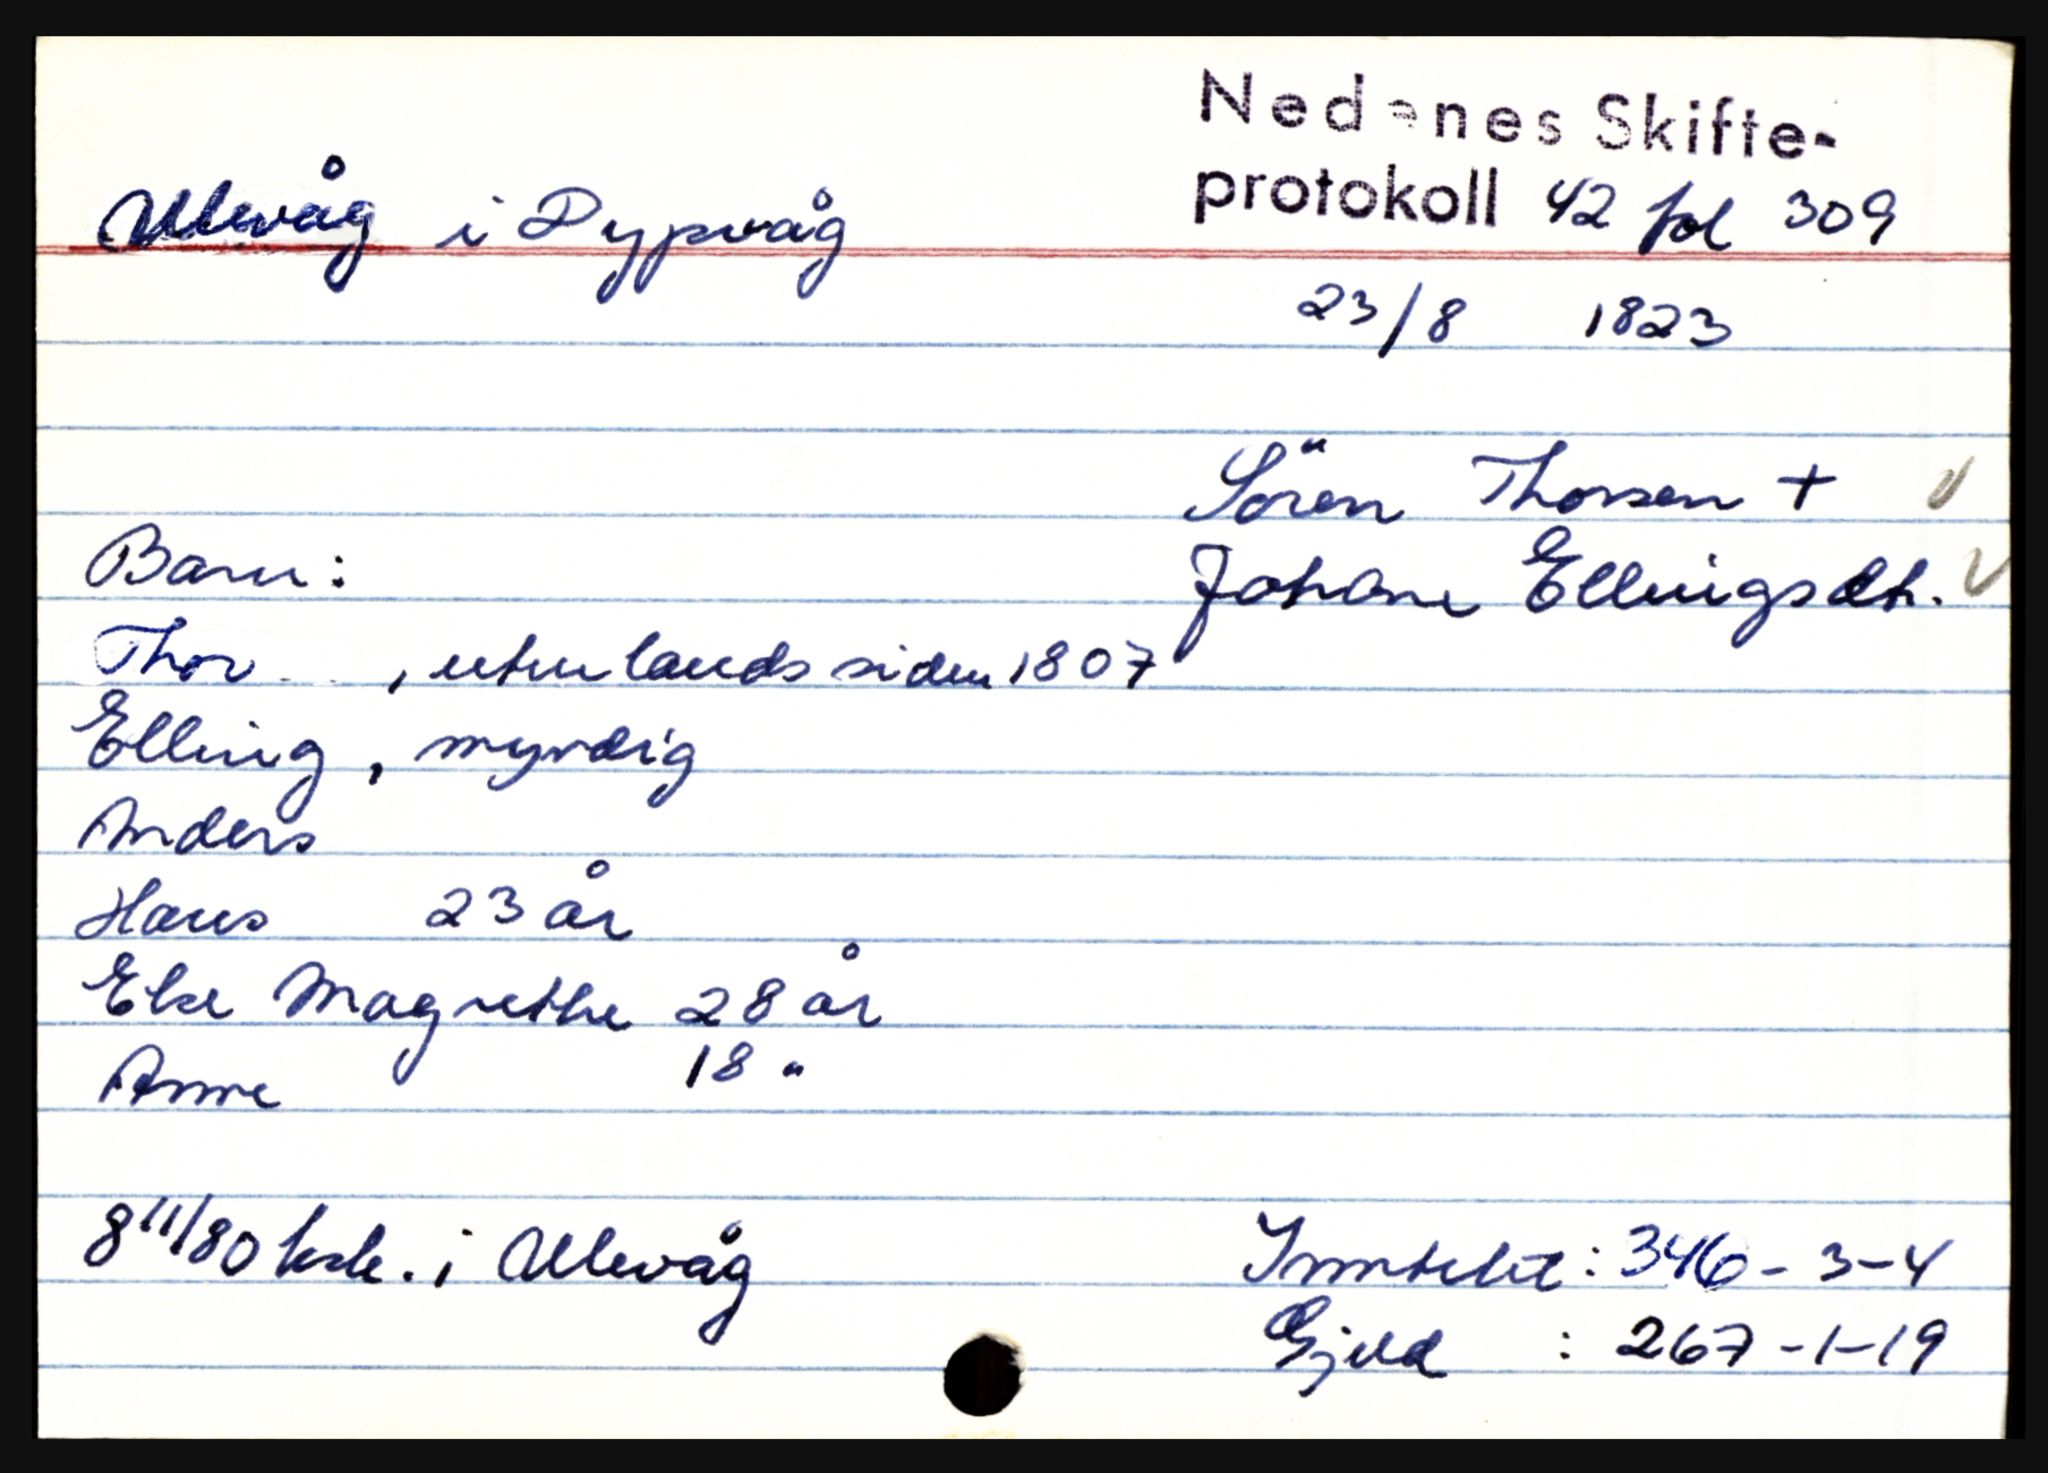 Nedenes Skifte-
protokoll 42 fol 309
Ulevåg i Dypvåg
23/8 1823
Sören Thorsen +
Johane Ellingsdt.
Barn:
Thor , utenlands siden 1807
Elling , myndig
Anders
Hans 23 år
Else Magrethe 28 år
Anne 18 "
8 11/80 hsk. i Ulevåg
Inntekt : 346 - 3 - 4
Gjeld : 267 - 1 - 19